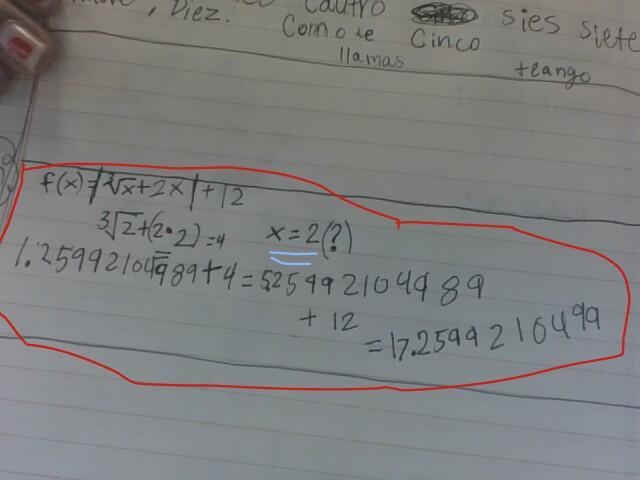 , Diez.
Cautro sies siete
Como te Cinco
llamas teango
f(x)=|∛x+2x|+12
∛2+(2•2)=4 x=2(?)
1.25992104989+4=5.25992104989
+12
=17.2599210499